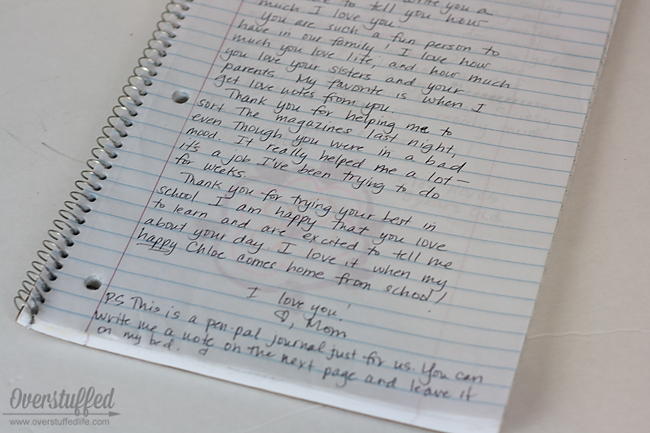 write you a
to tell you how
much I love you
you are such a fun person to
have in our family! I love how
much you love life, and how much
you love your sisters and your
parents. My favorite is when I
get love notes from you.
Thank you for helping me to
sort the magazines last night,
even though you were in a bad
mood. It really helped me a lot—
it's a job I've been trying to do
for weeks.
Thank you for trying your best in
school. I am happy that you love
to learn and are excited to tell me
about your day. I love it when my
happy Chloe comes home from school!
I love you!
♡, Mom
PS, This is a pen-pal journal just for us. You can
write me a note on the next page and leave it
on my bed.
Overstuffed
© www.overstuffedlife.com